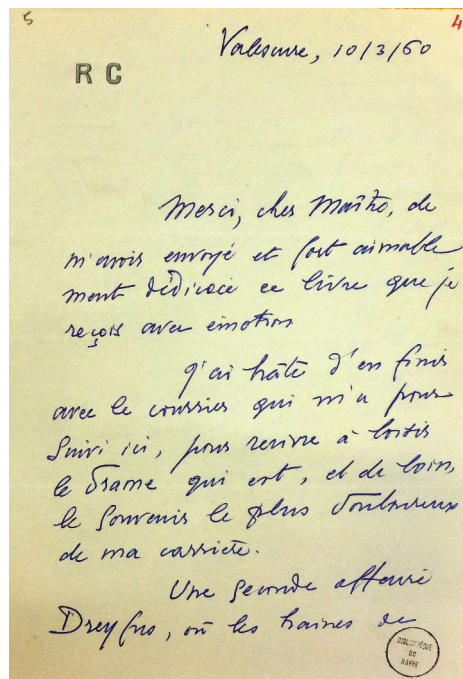 5
4
Valescure, 10/3/60
R C
Merci, cher Maître, de
m'avoir envoyé et fort aimable
ment dédicacé ce livre que je
reçois avec émotion
J'ai hâte d'en finir
avec le courrier qui m'a pour
suivi ici, pour revivre à loisir
le drame qui est, et de loin,
le souvenir le plus douloureux
de ma carrière.
Une seconde affaire
Dreyfus, où les haines de
BIBLIOTHÈQUE
DU
HAVRE